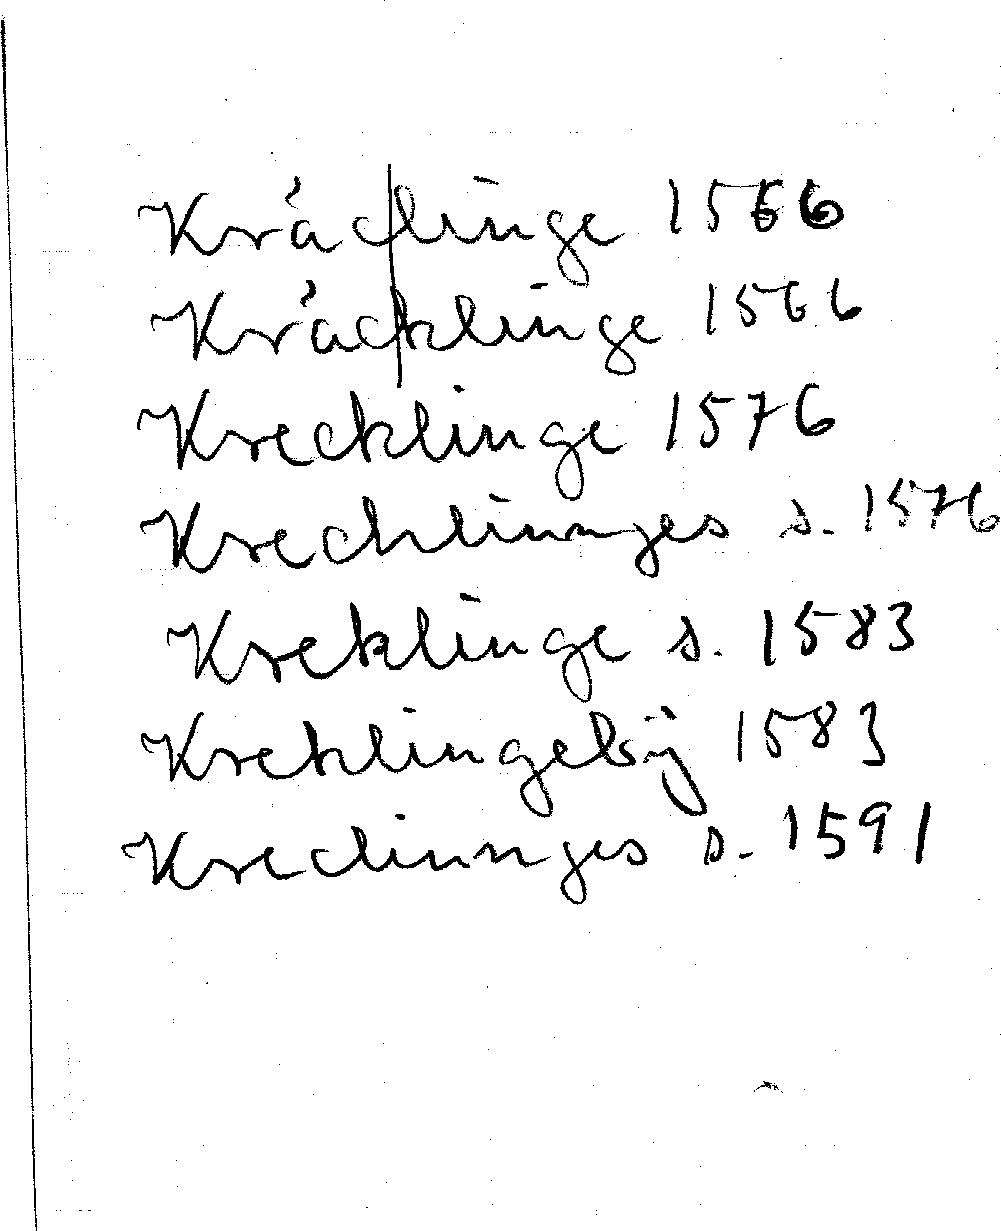 Kráclinge 1566
Krácklinge 1566
Krecklinge 1576
Krecklinnges s. 1576
Kreklinge s. 1583
Kreklingebÿ 1583
Kreclinnges s. 1591